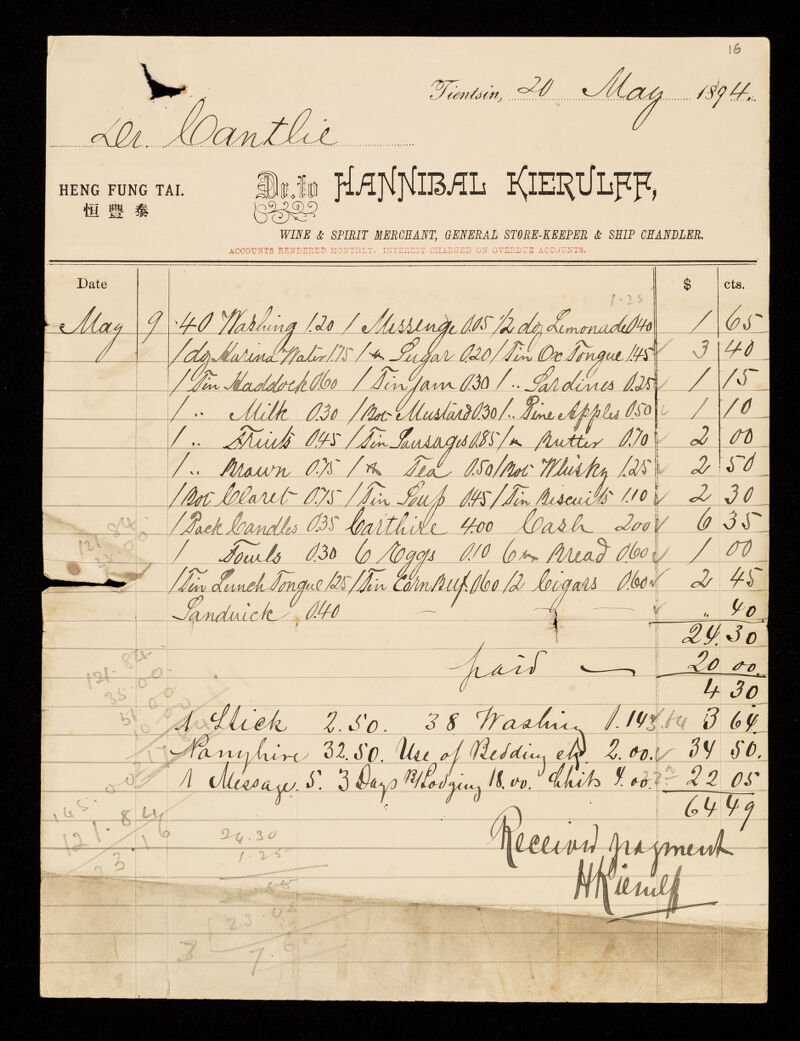 16
Tientsin, 20 May 1894.
Dr. Cantlie
HENG FUNG TAI.
恒豐泰
Dr. to HANNIBAL KIERULFF,
WINE & SPIRIT MERCHANT, GENERAL STORE-KEEPER & SHIP CHANDLER.
ACCOUNTS RENDERED MONTHLY. INTEREST CHARGED ON OVERDUE ACCOUNTS.
Date $ cts.
1-25
May 9 40 Washing 1.20 1 Messenge 0.05 1/2 dz Lemonade 0.40 1 65
1 dz Marina Water 1.75 1 Sugar 0.20 1 Tin Ox Tongue 1.45 3 40
1 Tin Haddock 0.60 1 Tin Jam 0.30 1 .. Sardines 0.25 1 15
1 .. Milk 0.30 1 Bot Mustard 0.30 1 .. Pine Apples 0.50 1 10
1 .. Fruits 0.45 1 Tin Sausages 0.85 1 Butter 0.70 2 00
1 .. Brawn 0.75 1 Tea 0.50 1 Bot Whisky 1.25 2 50
1 Bot Claret 0.75 1 Tin Soup 0.45 1 Tin Biscuits 1.10 2 30
1 Pack Candles 0.35 Carthire 4.00 Cash 2.00 6 35
1 Fowls 0.30 6 Eggs 0.10 6 Bread 0.60 1 00
1 Tin Lunch Tongue 1.25 1 Tin Corn Buf. 0.60 12 Cigars 0.60 2 45
Sandwick 0.40 — — — „ 40
24.30
paid — 20 00
4 30
1 Stick 2.50. 38 Washing 1.14 3.64 3 64.
Ponyhire 32.50. Use of Bedding etc. 2.00. 34 50.
1 Message. 5. 3 Days B/Lodging 18.00. Chits 4.00. 22 05
64 49
Received payment
HKierulff
121.84
35.00
121.84
35.00
51.00
10.00
217.84
145.00
121.84
23.16
24.30
1.25
23.45
3 7.6